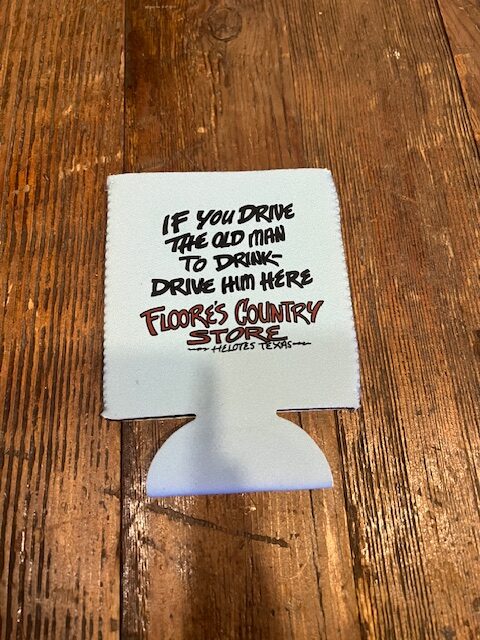 IF YOU DRIVE
THE OLD MAN
TO DRINK-
DRIVE HIM HERE
FLOORE'S COUNTRY
STORE
HELOTES TEXAS